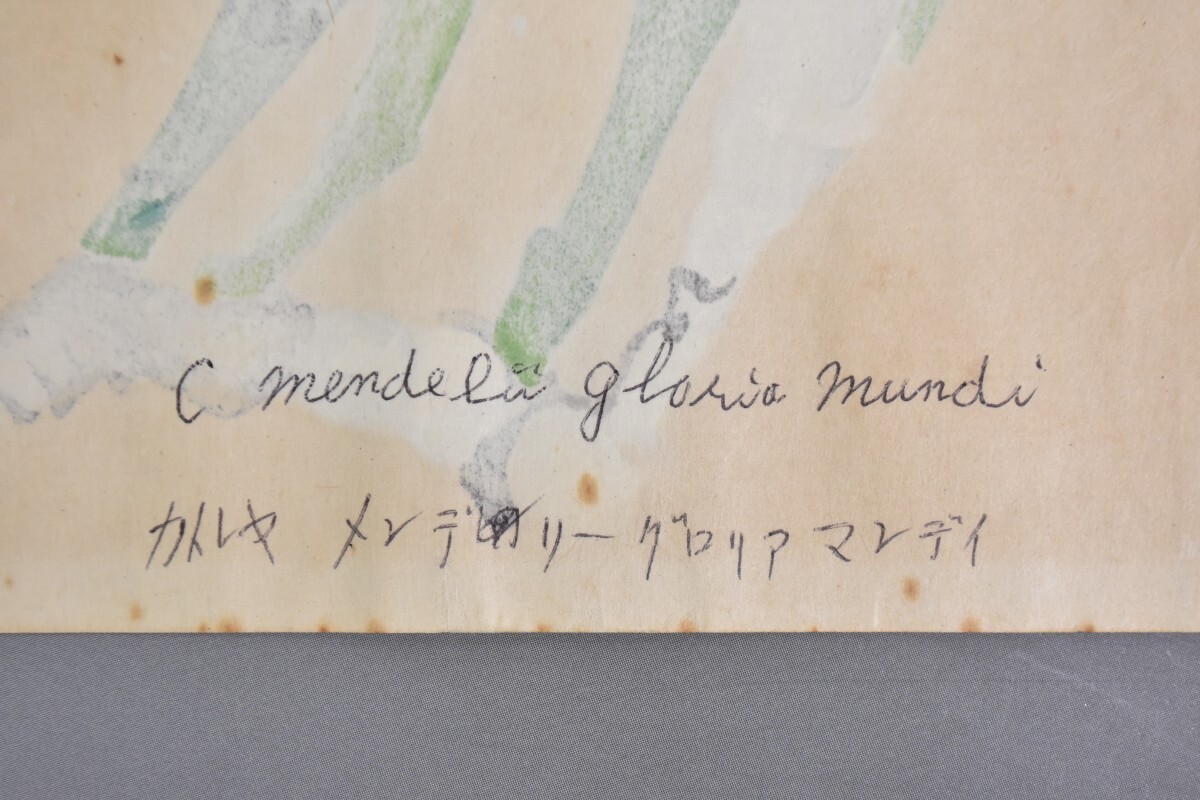 C mendelü gloria mundi
カトレヤ メンデリー グロリア マンデイ